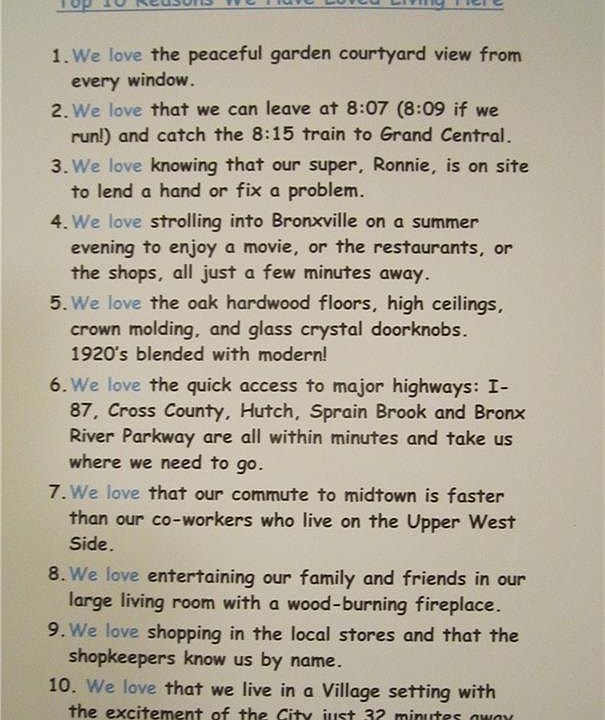 Top 10 Reasons We Have Loved Living Here
1. We love the peaceful garden courtyard view from
every window.
2. We love that we can leave at 8:07 (8:09 if we
run!) and catch the 8:15 train to Grand Central.
3. We love knowing that our super, Ronnie, is on site
to lend a hand or fix a problem.
4. We love strolling into Bronxville on a summer
evening to enjoy a movie, or the restaurants, or
the shops, all just a few minutes away.
5. We love the oak hardwood floors, high ceilings,
crown molding, and glass crystal doorknobs.
1920's blended with modern!
6. We love the quick access to major highways: I-
87, Cross County, Hutch, Sprain Brook and Bronx
River Parkway are all within minutes and take us
where we need to go.
7. We love that our commute to midtown is faster
than our co-workers who live on the Upper West
Side.
8. We love entertaining our family and friends in our
large living room with a wood-burning fireplace.
9. We love shopping in the local stores and that the
shopkeepers know us by name.
10. We love that we live in a Village setting with
the excitement of the City just 32 minutes away